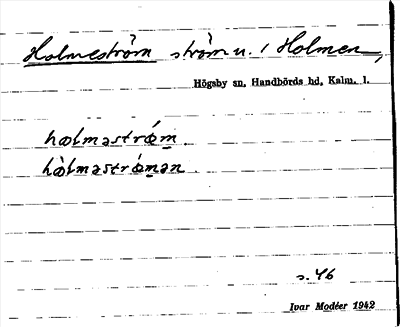 Holmeström ström u. i Holmen,
Högsby sn, Handbörds hd, Kalm. l.
hɷlməstrǿm
hɷ̀lməstrǿmən
s. 46
Ivar Modéer 1942